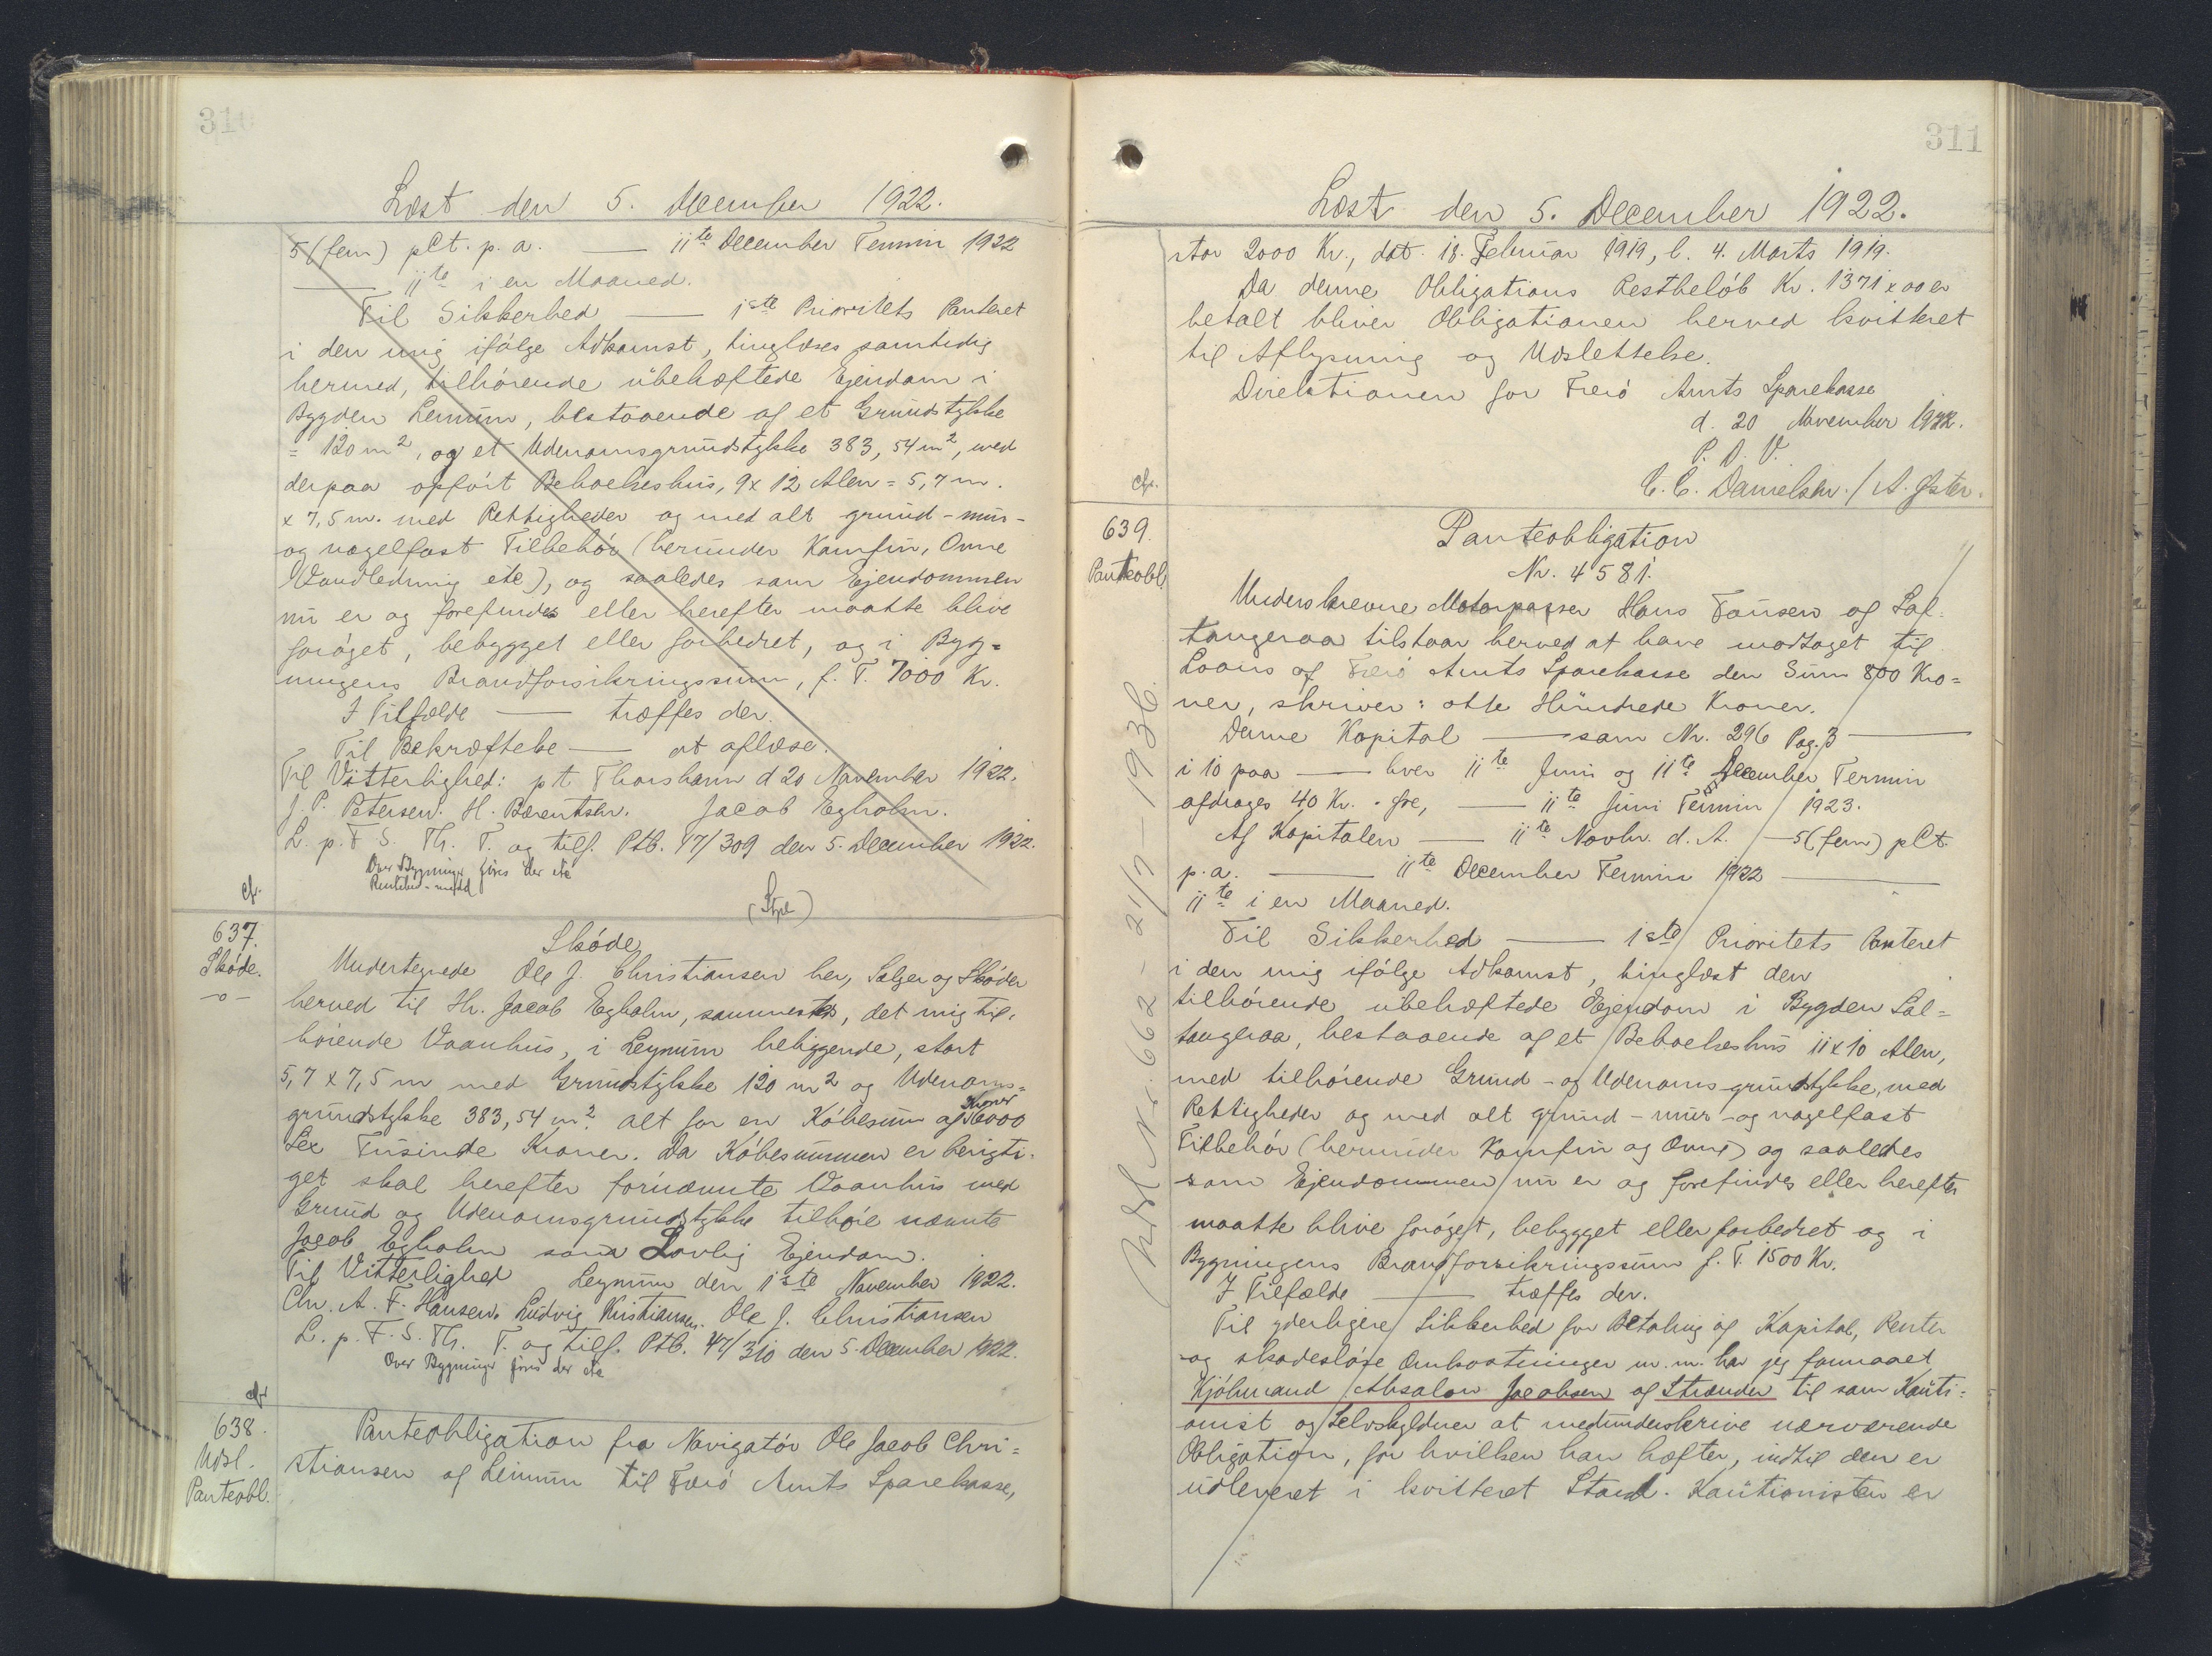 310
Læst den 5. December 1922.
5 (fem) pCt. p. a. — 11te December Termin 1922
— 11te i en Maaned.
Til Sikkerhed — 1ste Prioritets Panteret
i den mig ifølge Adkomst, tinglæses samtidig
hermed, tilhörende übehæftede Ejendom i
Bygden Leinum, bestaaende af et Grundstykke
= 120 m², og et Udenomsgrundstykke 383,54 m², med
derpaa opfört Beboelseshus, 9 x 12 Alen = 5,7 m.
x 7,5 m. med Rettigheder og med alt grund-mur-
og nagelfast Tilbehör (herunder Komfur, Ovne
Vandledning etc), og saaledes som Ejendommen
nu er og forefindes eller herefter maatte blive
foröget, bebygget eller forbedret, og i Byg=
ningens Brandforsikringssum, f. T. 7000 Kr.
I Tilfælde — træffes der.
Til Bekræftelse — at aflæse.
Til Vitterlighed: pt Thorshavn d 20 November 1922.
J. P. Petersen. H. Bærentsen. Jacob Egholm.
L. p. F. S. Th. T. og tilf. Ptb. 47/309 den 5. December 1922.
Over Bygninger föres der etc
cfr.
(Stpl)
637.
Sköde.
-o-
Sköde
Undertegnede Ole J. Christiansen her, Sælger og Sköder
herved til Hr. Jacob Egholm, sammested, det mig til-
hörende Vaanhus, i Leynum beliggende, stort
5,7 x 7,5 m med Grundstykke 120 m² og Udenoms=
grundstykke 383,54 m². alt for en Köbesum af Kroner 6000
Sex Tusinde Kroner. Da Köbesummen er berigti-
get skal herefter fornævnte Vaanhus med
Grund og Udenomsgrundstykke tilhöre nævnte
Jacob Egholm som Lovlig Ejendom.
Til Vitterlighed Leynum den 1ste November 1922.
Chr. A. F. Hansen. Ludvig Kristiansen. Ole J. Christiansen
L. p. F. S. Th. T. og tilf. Ptb. 47/310 den 5. December 1922.
Over Bygninger föres der etc
cfr
638.
Udsl.
Panteobl.
Panteobligation fra Navigatör Ole Jacob Chri=
stiansen af Leinum til Færö Amts Sparekasse,
311
Læst den 5. December 1922.
stor 2000 Kr., dat. 18. Februar 1919, l. 4. Marts 1919.
Da denne Obligations Restbelöb Kr. 1371 x 00 er
betalt bliver Obligationen herved kvitteret
til Aflysning og Udslettelse.
Direktionen for Færö Amts Sparekasse
d. 20 November 1922.
P. D. V.
C. C. Danielsen. / A. Øster.
cfr.
639.
Panteobl
Panteobligation
Nr. 4581.
Underskrevne Motorpasser Hans Joensen af Sal-
tangeraa tilstaar herved at have modtaget til
Laans af Færö Amts Sparekasse den Sum 800 Kro=
ner, skriver: otte Hundrede Kroner.
Denne Kapital — som Nr. 296 Pag. 3 —
i 10 paa — hver 11te Juni og 11te December Termin
afdrages 40 Kr. - Øre, — 11te Juni Termin 1923.
Af Kapitalen — 11te Novbr. d. A. — 5 (fem) pCt.
p. a. — 11te December Termin 1922 —
11te i en Maaned.
Til Sikkerhed — 1ste Prioritets Panteret
i den mig ifölge Adkomst, tinglæst den
tilhörende übehæftede Ejendom i Bygden Sal=
tangeraa, bestaaende af et Beboelseshus 11 x 10 Alen,
med tilhörende Grund- og Udenoms-grundstykke, med
Rettigheder og med alt grund-mur-og nagelfast
Tilbehör (herunder Komfur og Ovne) og saaledes
som Ejendommen nu er og forefindes eller herefter
maatte blive foröget, bebygget eller forbedret og i
Bygningens Brandforsikringssum f. T. 1500 Kr.
I Tilfælde — træffes der.
Til yderligere Sikkerhed for Betaling af Kapital, Renter
og skadeslöse Omkostninger m. m. har jeg formaaet
Kjöbmand Absalon Jacobsen af Strænder til som Kauti=
onist og Selvskyldner at medunderskrive nærværende
Obligation, for hvilken han hæfter, indtil den er
udleveret i kvitteret Stand. Kautionisten er
Udsl. Nr. 662 - 21/7 - 1936.